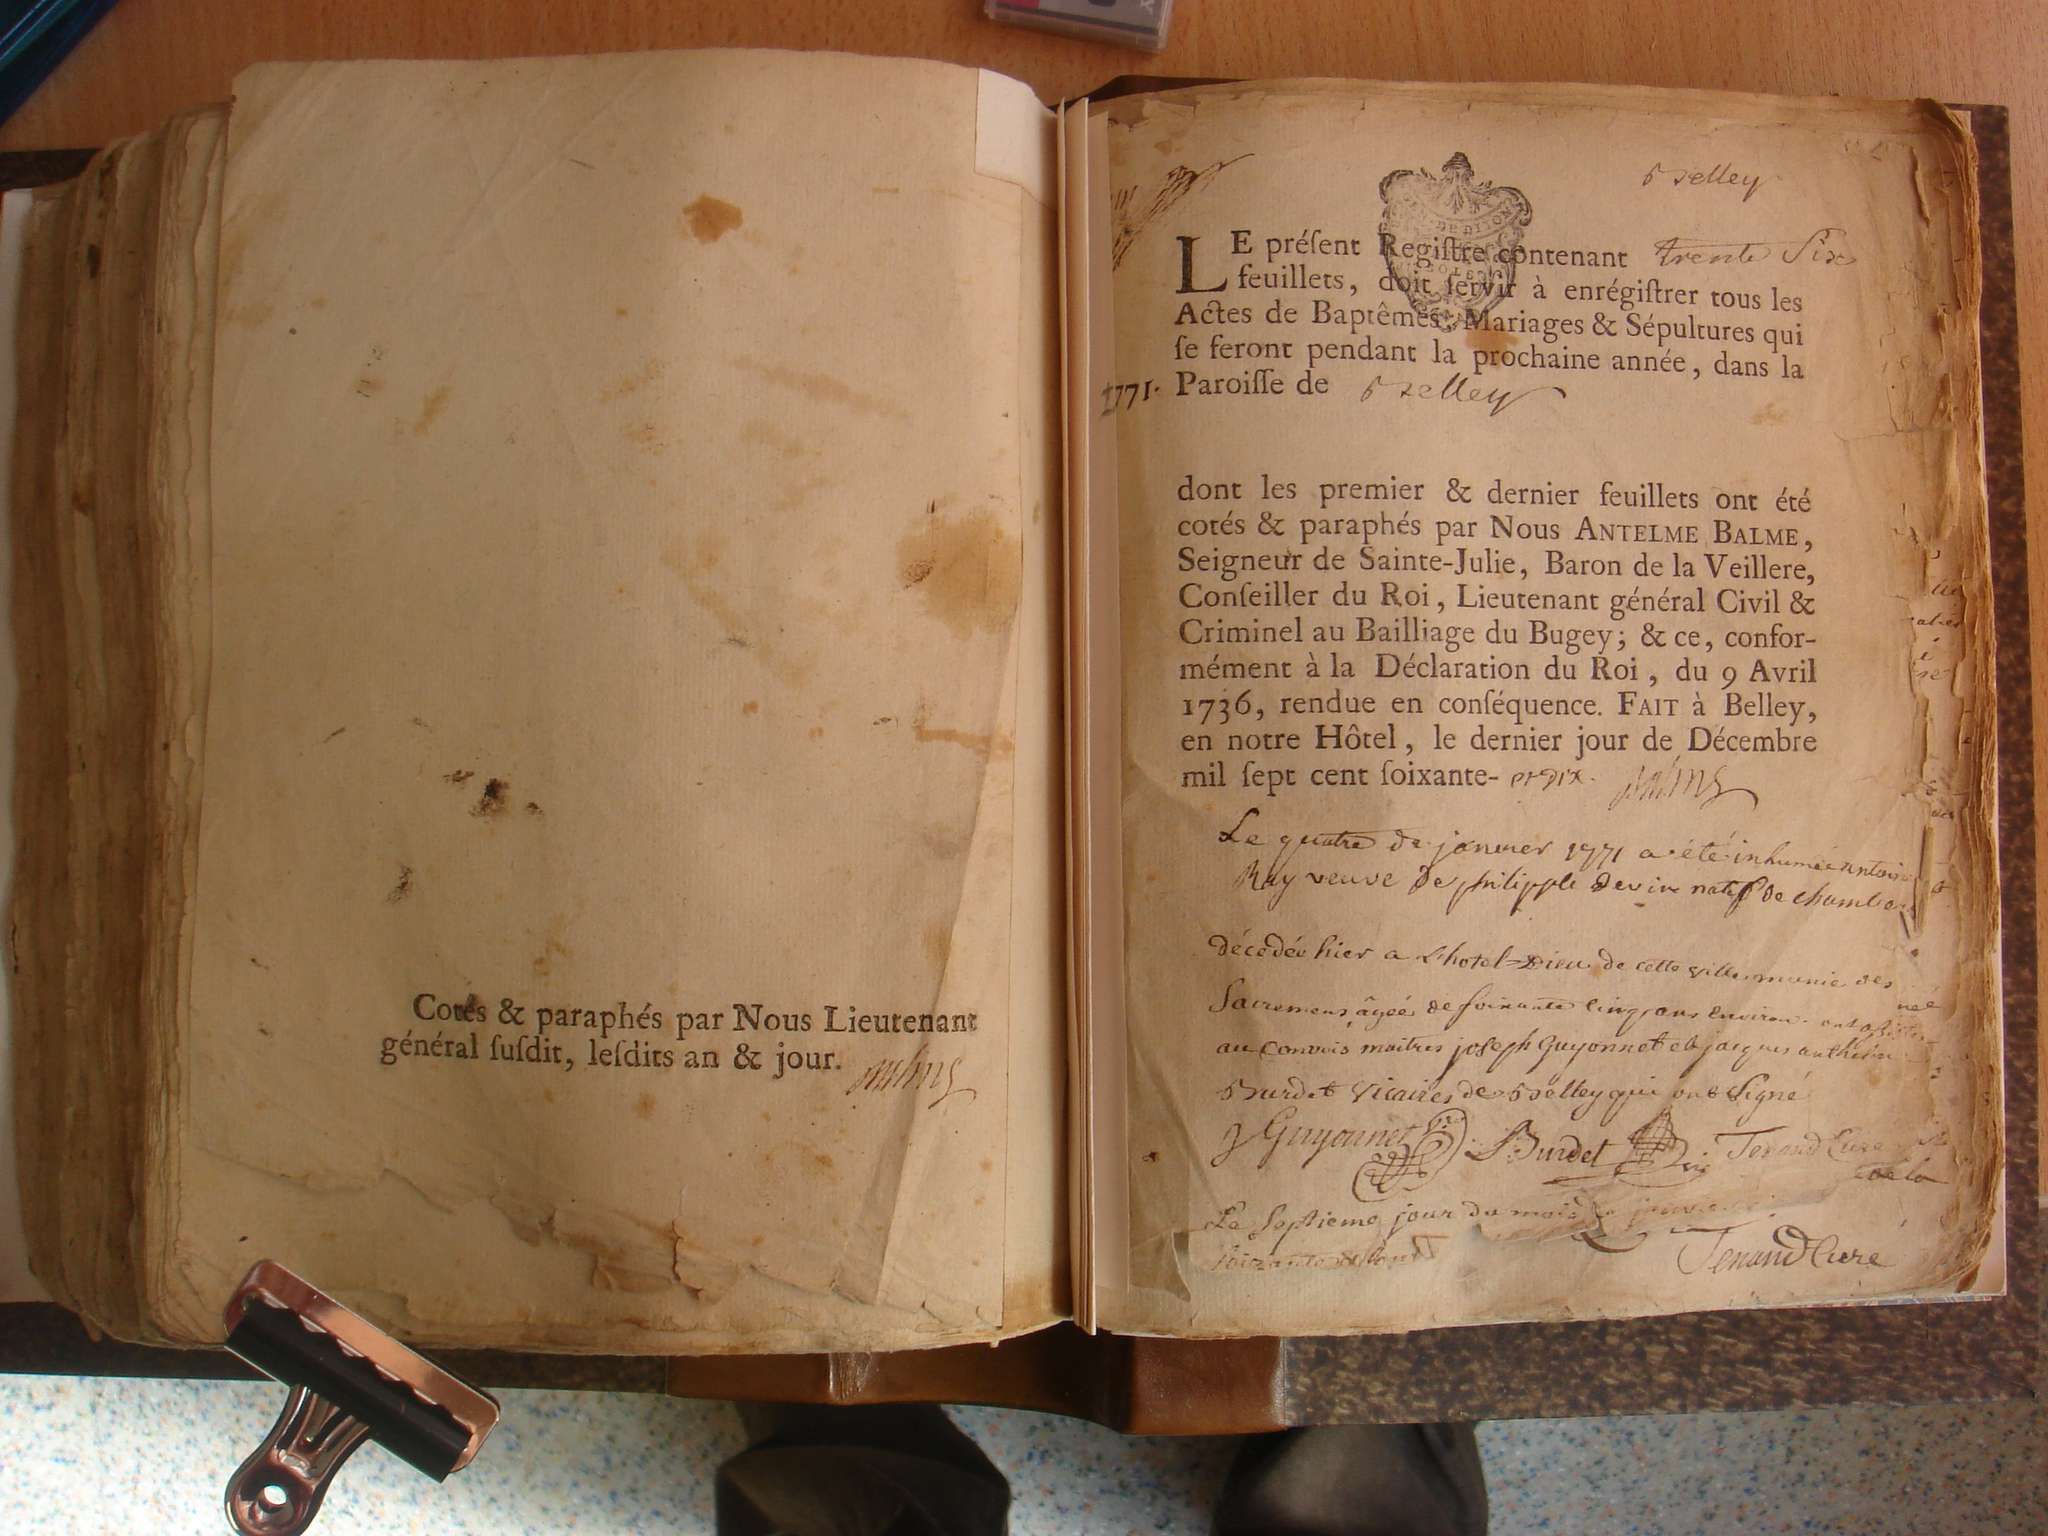 Cotés & paraphés par Nous Lieutenant
général ſuſdit, leſdits an & jour.
Belley
LE préſent Regiſtre contenant trente Six
feuillets, doit ſervir à enrégiſtrer tous les
Actes de Baptêmes, Mariages & Sépultures qui
ſe feront pendant la prochaine année, dans la
1771. Paroiſſe de Belley
dont les premier & dernier feuillets ont été
cotés & paraphés par Nous ANTELME BALME,
Seigneur de Sainte-Julie, Baron de la Veillere,
Conſeiller du Roi, Lieutenant général Civil &
Criminel au Bailliage du Bugey; & ce, confor-
mément à la Déclaration du Roi, du 9 Avril
1736, rendue en conſéquence. FAIT à Belley,
en notre Hôtel, le dernier jour de Décembre
mil ſept cent ſoixante- et dix. Balme
Le quatre de janvier 1771 a été inhumée
Ray veuve de philippe devine natif de
décédée hier a L'hotel=Dieu de cette ville munie des
Sacremens, âgée de soixante cinq ans environ. ont
au convois maitres joseph Guyonnet et jacques
Burdet Vicaires de Belley qui ont Signé
J Guyonnet Burdet Tenand Curé
Le Septieme jour du mois de janvier
soixante et
Tenand Curé